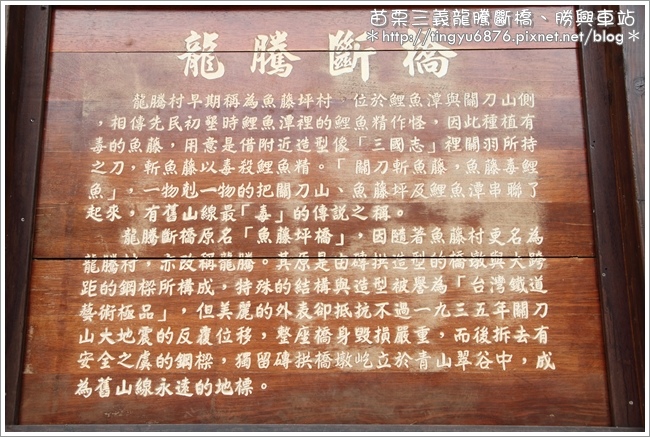 苗栗三義龍騰斷橋、勝興車站
＊http://tingyu6876.pixnet.net/blog＊
龍騰斷橋
龍騰村早期稱為魚藤坪村，位於鯉魚潭與關刀山側
，相傳先民初墾時鯉魚潭裡的鯉魚精作怪，因此種植有
毒的魚藤，用意是借附近造型像「三國志」裡關羽所持
之刀，斬魚藤以毒殺鯉魚精。「關刀斬魚藤，魚藤毒鯉
魚」，一物剋一物的把關刀山、魚藤坪及鯉魚潭串聯了
起來，有舊山線最「毒」的傳說之稱。
龍騰斷橋原名「魚藤坪橋」，因隨著魚藤村更名為
龍騰村，亦改稱龍騰。其原是由磚拱造型的橋墩與大跨
距的鋼樑所構成，特殊的結構與造型被譽為「台灣鐵道
藝術極品」，但美麗的外表卻抵抗不過一九三五年關刀
山大地震的反覆位移，整座橋身毀損嚴重，而後拆去有
安全之虞的鋼樑，獨留磚拱橋墩屹立於青山翠谷中，成
為舊山線永遠的地標。